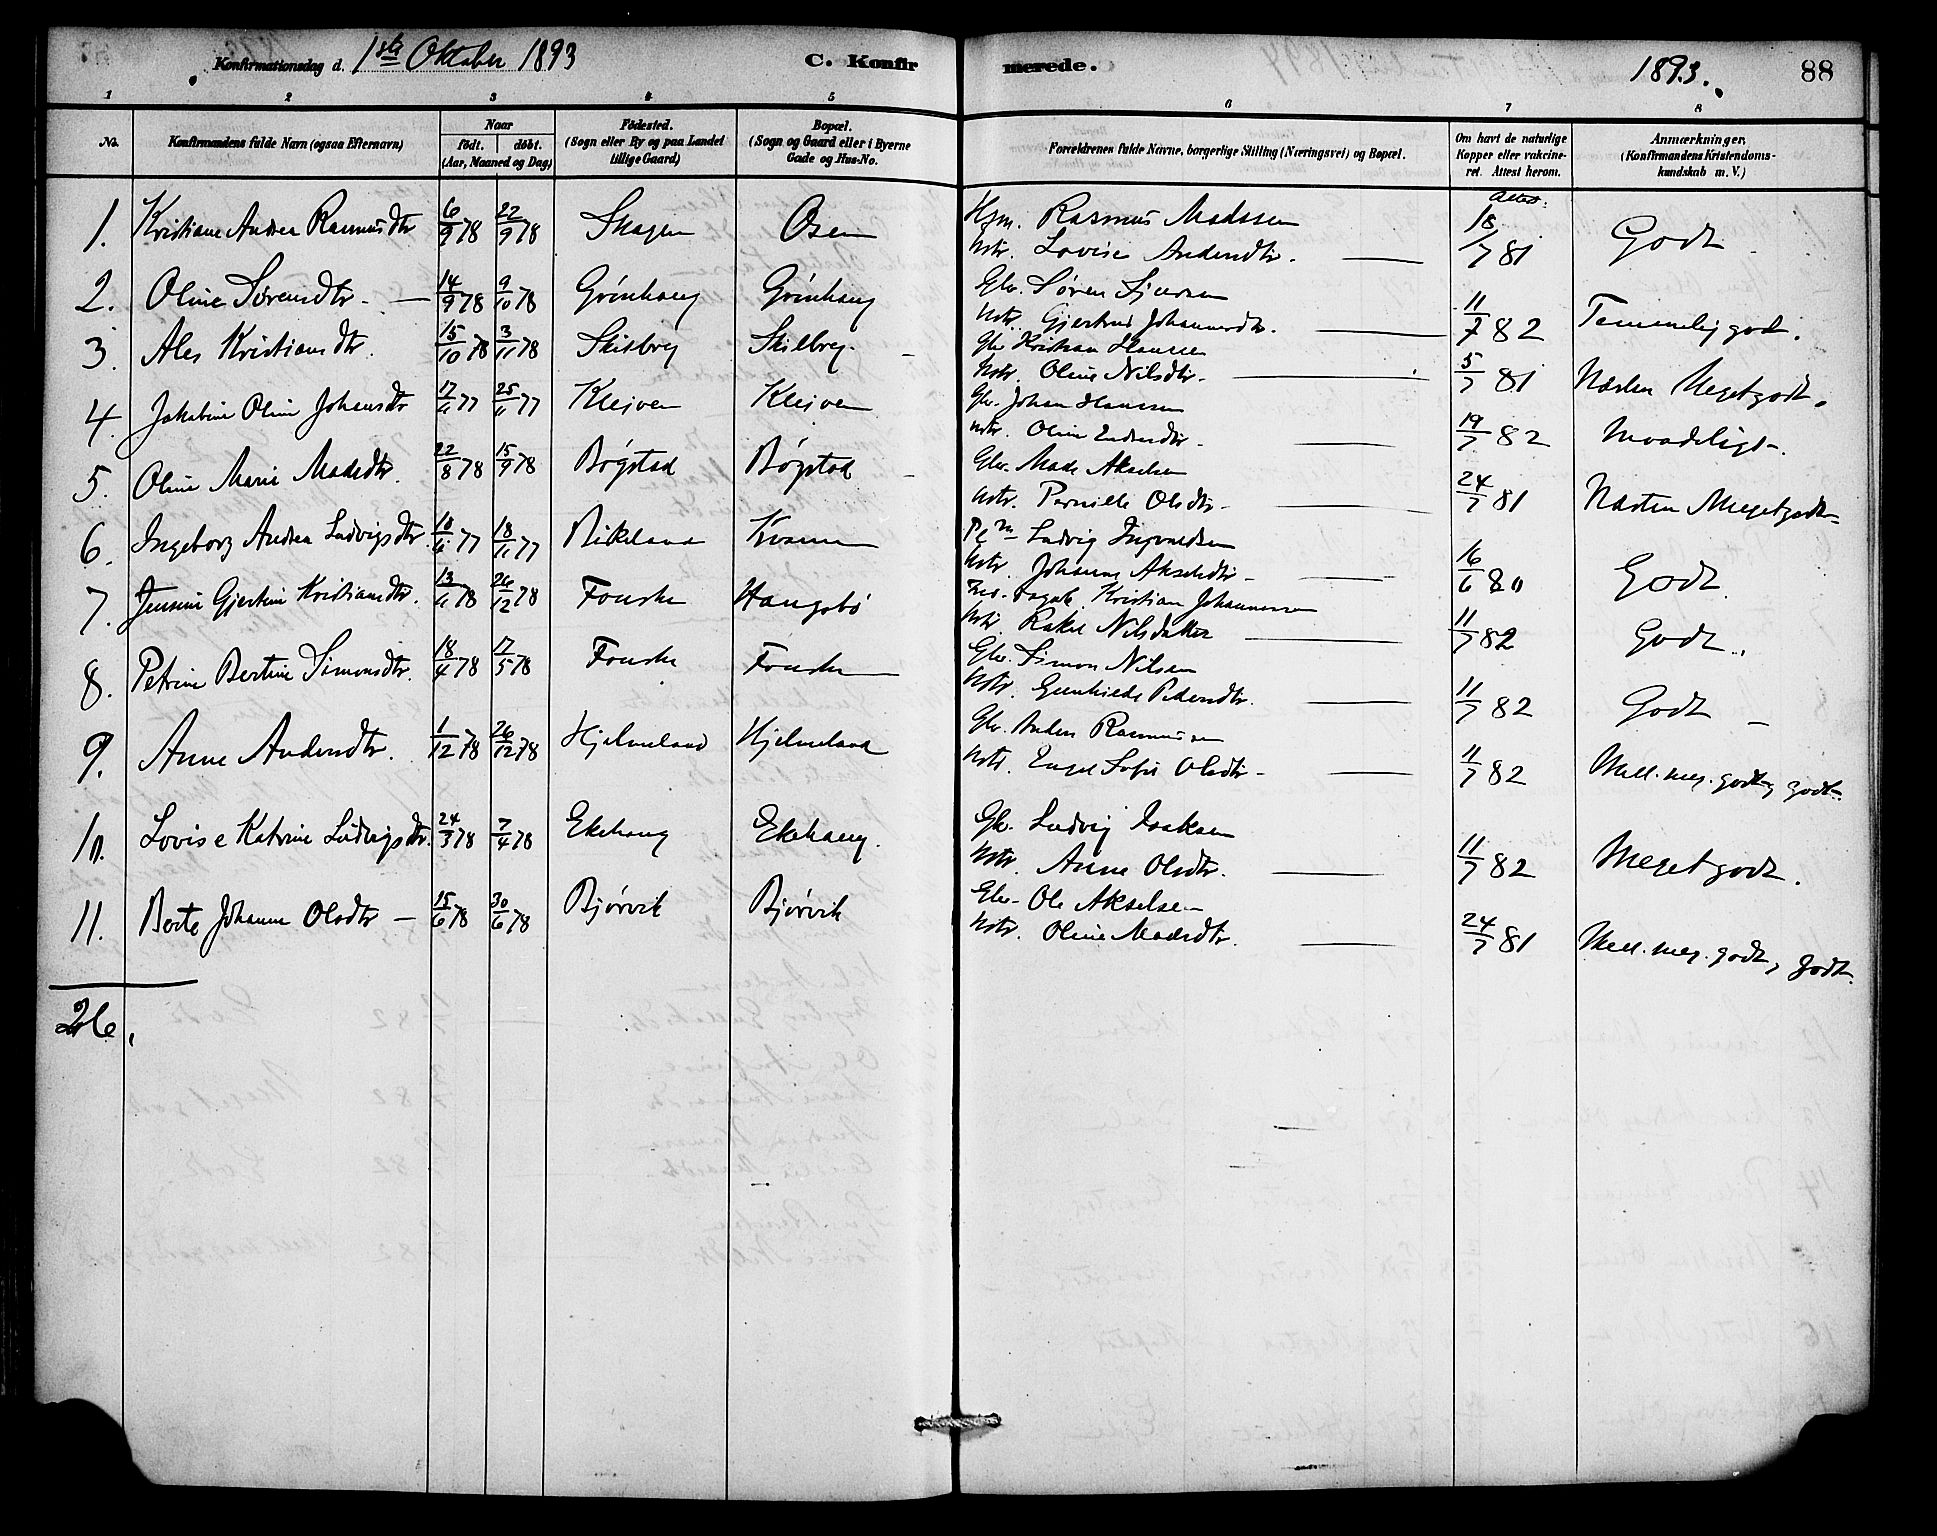 Konfirmationsdag d. 1ste Oktober 1893 C. Konfirmerede. 1893. 88
1 2 3 4 5 6 7 8
No. Konfirmandens fulde Navn (ogsaa Efternavn) Naar født. døbt. (Aar, Maaned og Dag) Fødested. (Sogn eller By og paa Landet tillige Gaard) Bopæl. (Sogn og Gaard eller i Byerne Gade og Hus-No.) Forældrenes fulde Navne, borgerlige Stilling (Næringsvei) og Bopæl. Om havt de naturlige Kopper eller vakcineret. Attest herom. Anmærkninger. (Konfirmandens Kristendomskundskab m. V.)
Attest.
1. Kristiane Andrea Rasmusdtr 6/9 78 22/9 78 Skagen Osen Hsm. Rasmus Madssen
Hstr. Lovise Andersdtr. — 18/7 81 Godt
2. Oline Sørensdtr. — 14/9 78 9/10 78 Grønhaug Grønhaug Gbr. Søren
Hstr. Gjertrud Johannesdtr. — 11/7 82 Temmelig godt.
3. Ales Kristiansdtr. 15/10 78 3/11 78 Skilbrej Skilbrej Gbr Kristian Hanssen
Hstr. Oline Nilsdtr. — 5/7 81 Næsten Meget godt.
4. Jakobine Oline Johansdtr 17/11 77 25/11 77 Klejven Klejven Gbr. Johan Hanssen
Hstr. Oline — 19/7 82 Maadeligt.
5. Oline Marie Madsdtr. 22/8 78 15/9 78 Bøgstad Bøgstad Gbr. Mads Akselsen
Hstr. Pernille Olsdtr. — 24/7 81 Næsten Meget godt
6. Ingeborg Andrea Ludvigsdtr 10/11 77 18/11 77 Kvamm Ludvig Ingvaldsen
Hstr. Johanne Akselsdtr — 16/6 80 Godt.
7. Jensine Gjertine Kristiansdtr. 13/11 78 26/12 78 Fonske Haugsbø Kristian Johannessen
Hstr. Rakel Nilsdatter — 11/7 82 Godt.
8. Petrine Bertine Simonsdtr. 18/4 78 17/5 78 Fonske Fonske Gbr. Simon Nilsen
Hstr. Gunhilde Pedersdtr. — 11/7 82 Godt
9. Anne Andersdtr. 1/12 78 26/12 78 Hjelmeland Hjelmeland Gbr. Anders Rasmussen
Hstr. Engel Sofie Olsdtr — 11/7 82 Mell. meg. godt og godt.
10. Lovise Katrine Ludvigsdtr. 24/3 78 7/4 78 Ekehaug Ekehaug. Gbr. Ludvig Isaksen
Hstr. Anne Olsdtr. — 11/7 82 Meget godt.
11. Berte Johanne Olsdtr — 15/6 78 30/6 78 Bjørvik Bjørvik Gbr. Ole Akselsen
Hstr. Oline Madsdtr. — 24/7 81 Mell. meg. godt, godt.
26.